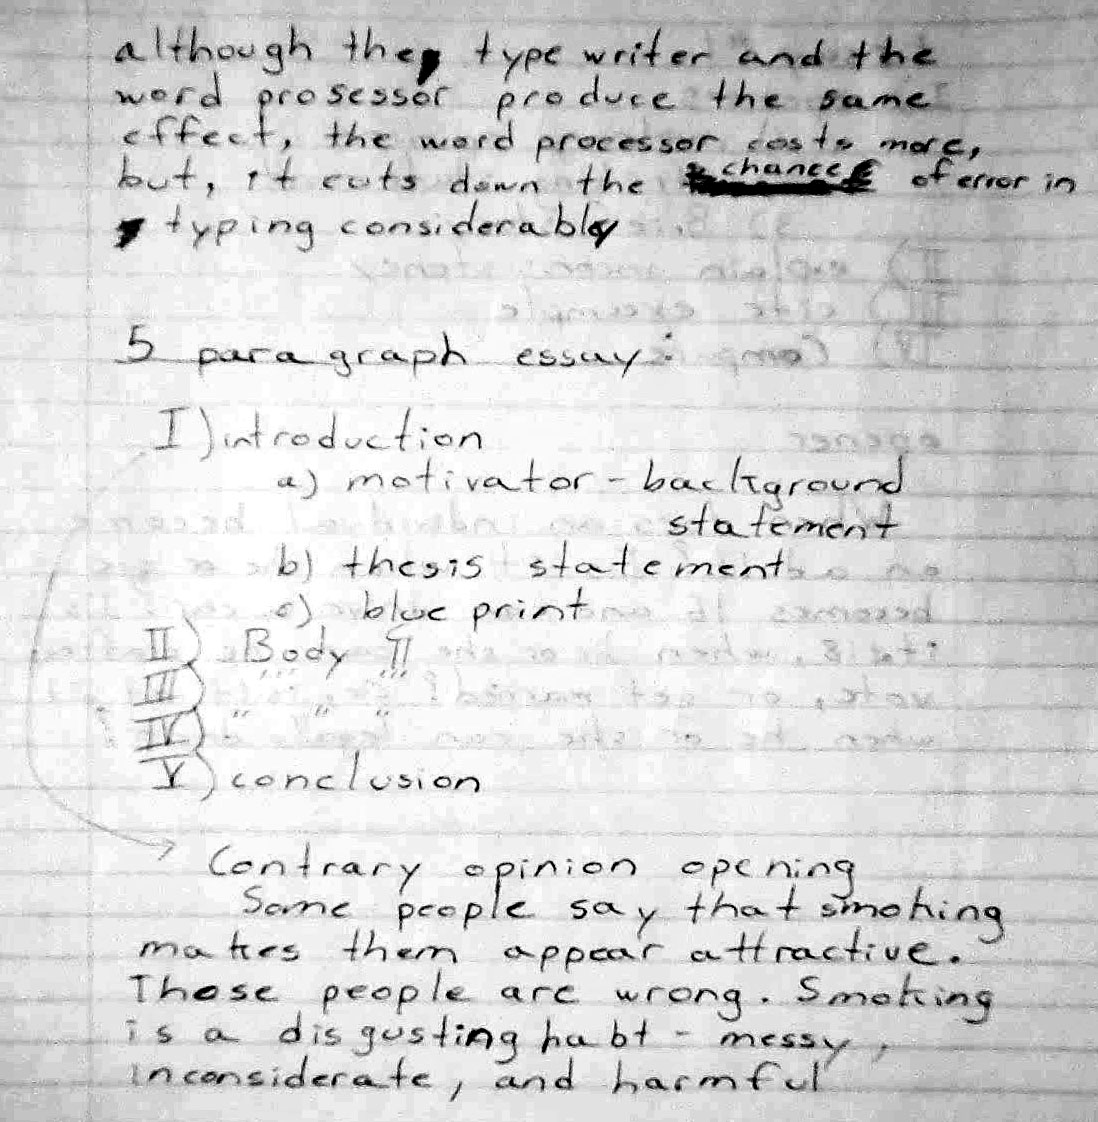 although the type writer and the
word prosessor produce the same
effect, the word processor costs more,
but, it cuts down the chance of error in
typing considerably
5 paragraph essay:
I) introduction
a) motivator - background
statement
b) thesis statement
c) blue print
II) Body ¶
III) " " "
IV) " " "
V) conclusion
Contrary opinion opening
Some people say that smoking
makes them appear attractive.
Those people are wrong. Smoking
is a disgusting habt - messy,
inconsiderate, and harmful